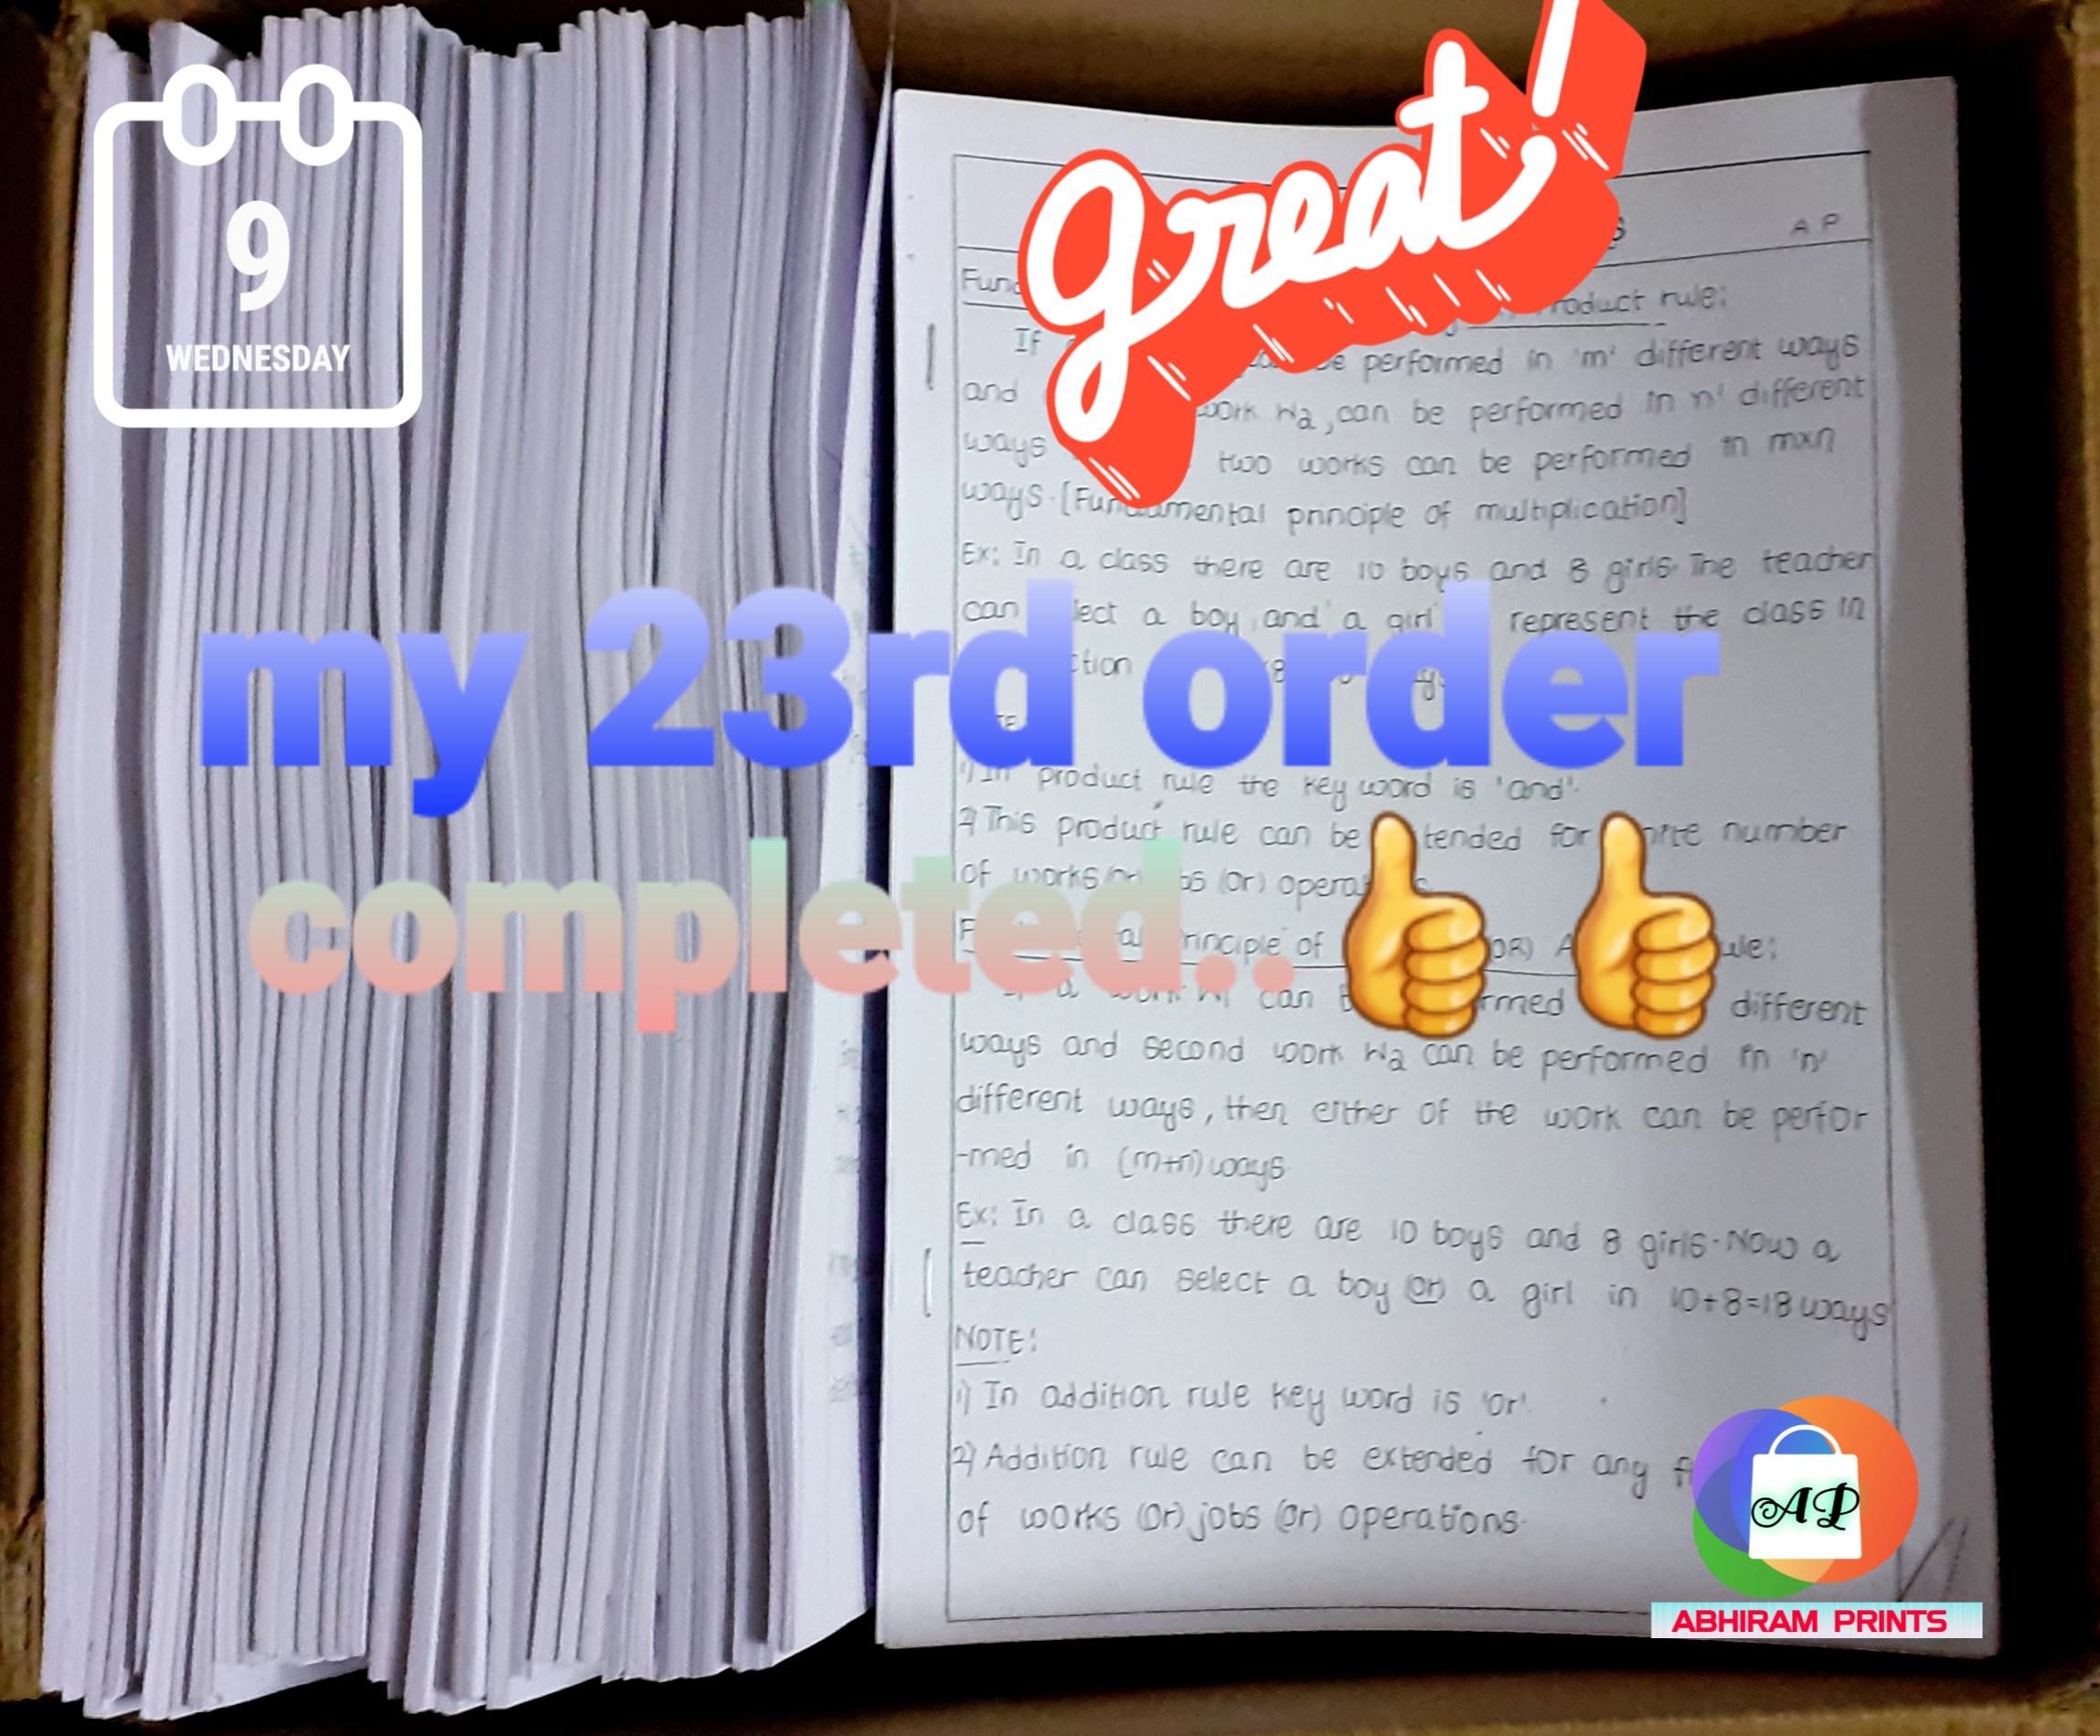 great!
9
WEDNESDAY
A P
Product rule:
If be performed in 'm' different ways
and work W2, can be performed in 'n' different
ways two works can be performed in mxn
ways. [Fundamental principle of multiplication]
Ex: In a class there are 10 boys and 8 girls. The teacher
can select a boy and a girl represent the class in
my 23rd order
1) In product rule the key word is 'and'.
2) This product rule can be extended for number
of works (or) jobs (or) operations
completed..
principle of (OR) rule:
a work W1 can different
ways and second work W2 can be performed in 'n'
different ways, then either of the work can be perfor
-med in (m+n) ways
Ex: In a class there are 10 boys and 8 girls. Now a
teacher can select a boy (or) a girl in 10+8=18 ways
NOTE:
1) In addition rule key word is 'or'.
2) Addition rule can be extended for any
of works (or) jobs (or) operations.
AP
ABHIRAM PRINTS